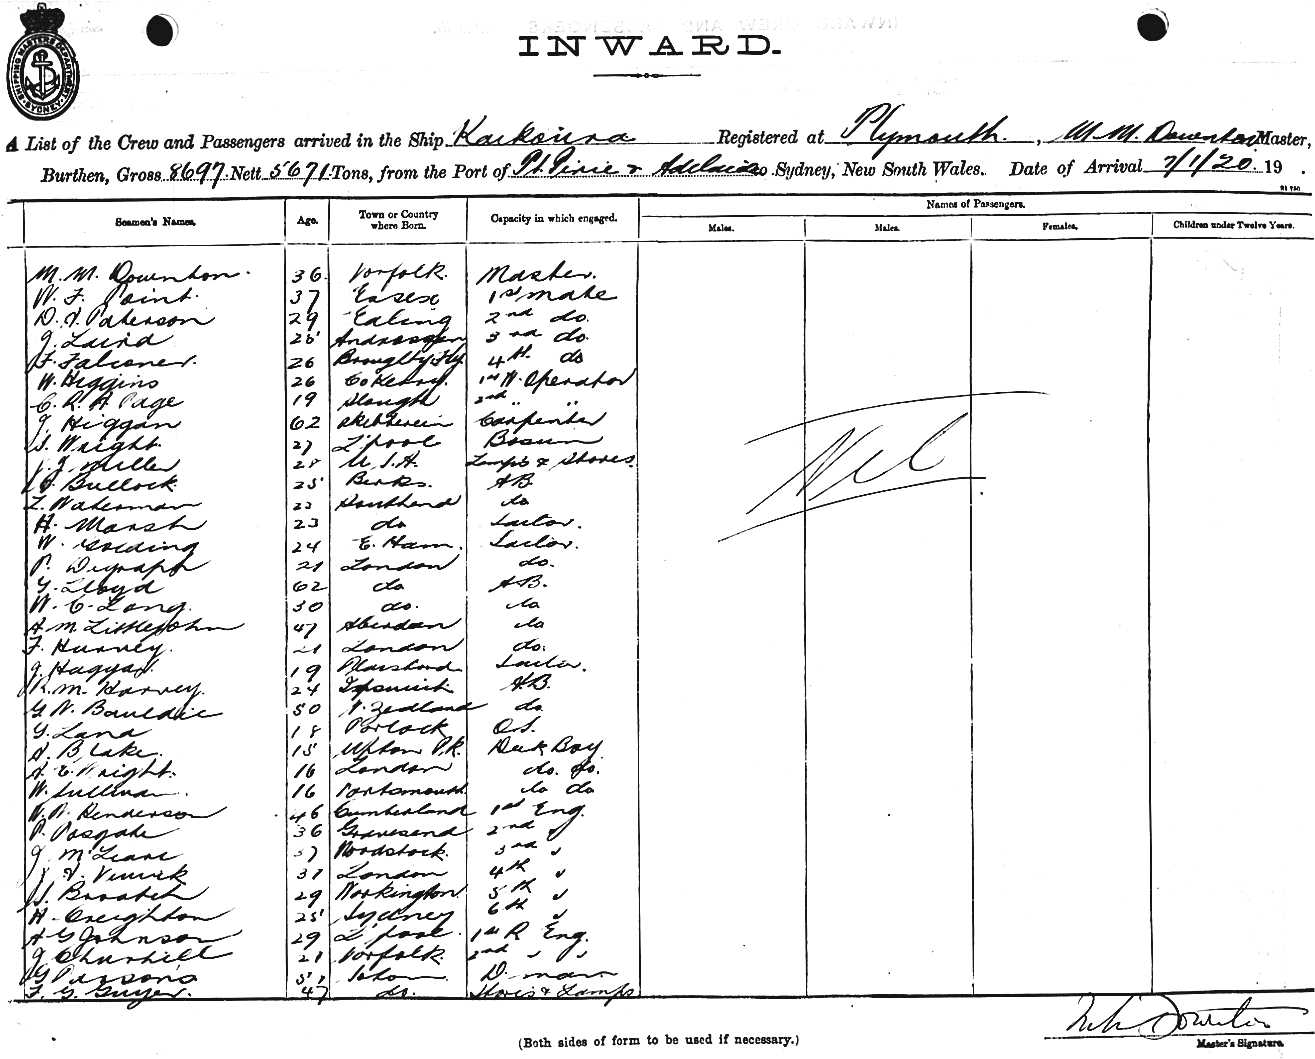 SHIPPING MASTERS DEPARTMENT SYDNEY
INWARD.
A List of the Crew and Passengers arrived in the Ship Kaikoura Registered at Plymouth, M. M. Downton Master,
Burthen, Gross 8697 Nett 5671 Tons, from the Port of Pt. Pirie & Adelaide to Sydney, New South Wales. Date of Arrival 7/1/20 19 .
Seamen's Names. Age. Town or Country where Born. Capacity in which engaged. Names of Passengers.
Males. Males. Females. Children under Twelve Years.
M. M. Downton. 36 Norfolk. Master.
W. F. Point. 37 Essex 1st mate
D. Paterson 29 Ealing 2nd do.
J. Laird 25 Androssan 3rd do.
F. Falconer. 26 Broughty Fy. 4th do
W. Higgins 26 Co Kerry. 1st W. Operator
C. R. A Page 19 Slough 2nd " "
J. Higgan 62 Skibbereen Carpenter
S. Wright. 27 L'pool Bosun
J. J. Miller 28 U.S.A. Lamps & Stores.
Bullock 25 Berks. AB.
Waterman 22 Southend do
H. Marsh 23 do Sailor.
W. Golding 24 E. Ham. Sailor.
P. 21 London do.
G. Lloyd 62 do AB.
W. C. Long. 30 do. do
A M. Littlejohn 47 Aberdeen do
F. Hurvey. 21 London do.
J. Hagyas. 19 Sailor.
R. M. Harvey. 24 Ipswich A.B.
G. W. Bauldie 50 N. Zealand do
G. Land 18 Porlock O.S.
A. Blake. 15 Upton Pk. Deck Boy
A. E. Wright. 16 London do. do.
W. Sullivan. 16 Portsmouth. do do
W. Henderson 46 Cumberland 1st Eng.
P. Posgate 36 Gravesend 2nd "
J. McLeans 37 Woodstock. 3rd "
31 London 4th "
29 Workington. 5th "
H. Creighton 25 Sydney 6th "
A G Johnson 29 L'pool. 1st R Eng.
J. Churhill 21 Norfolk. 2nd " "
G. Parsons Soton D. man
F. G. Guyer. 47 do. Stores & Lamps
Nil
(Both sides of form to be used if necessary.)
M. M. Downton
Master's Signature.